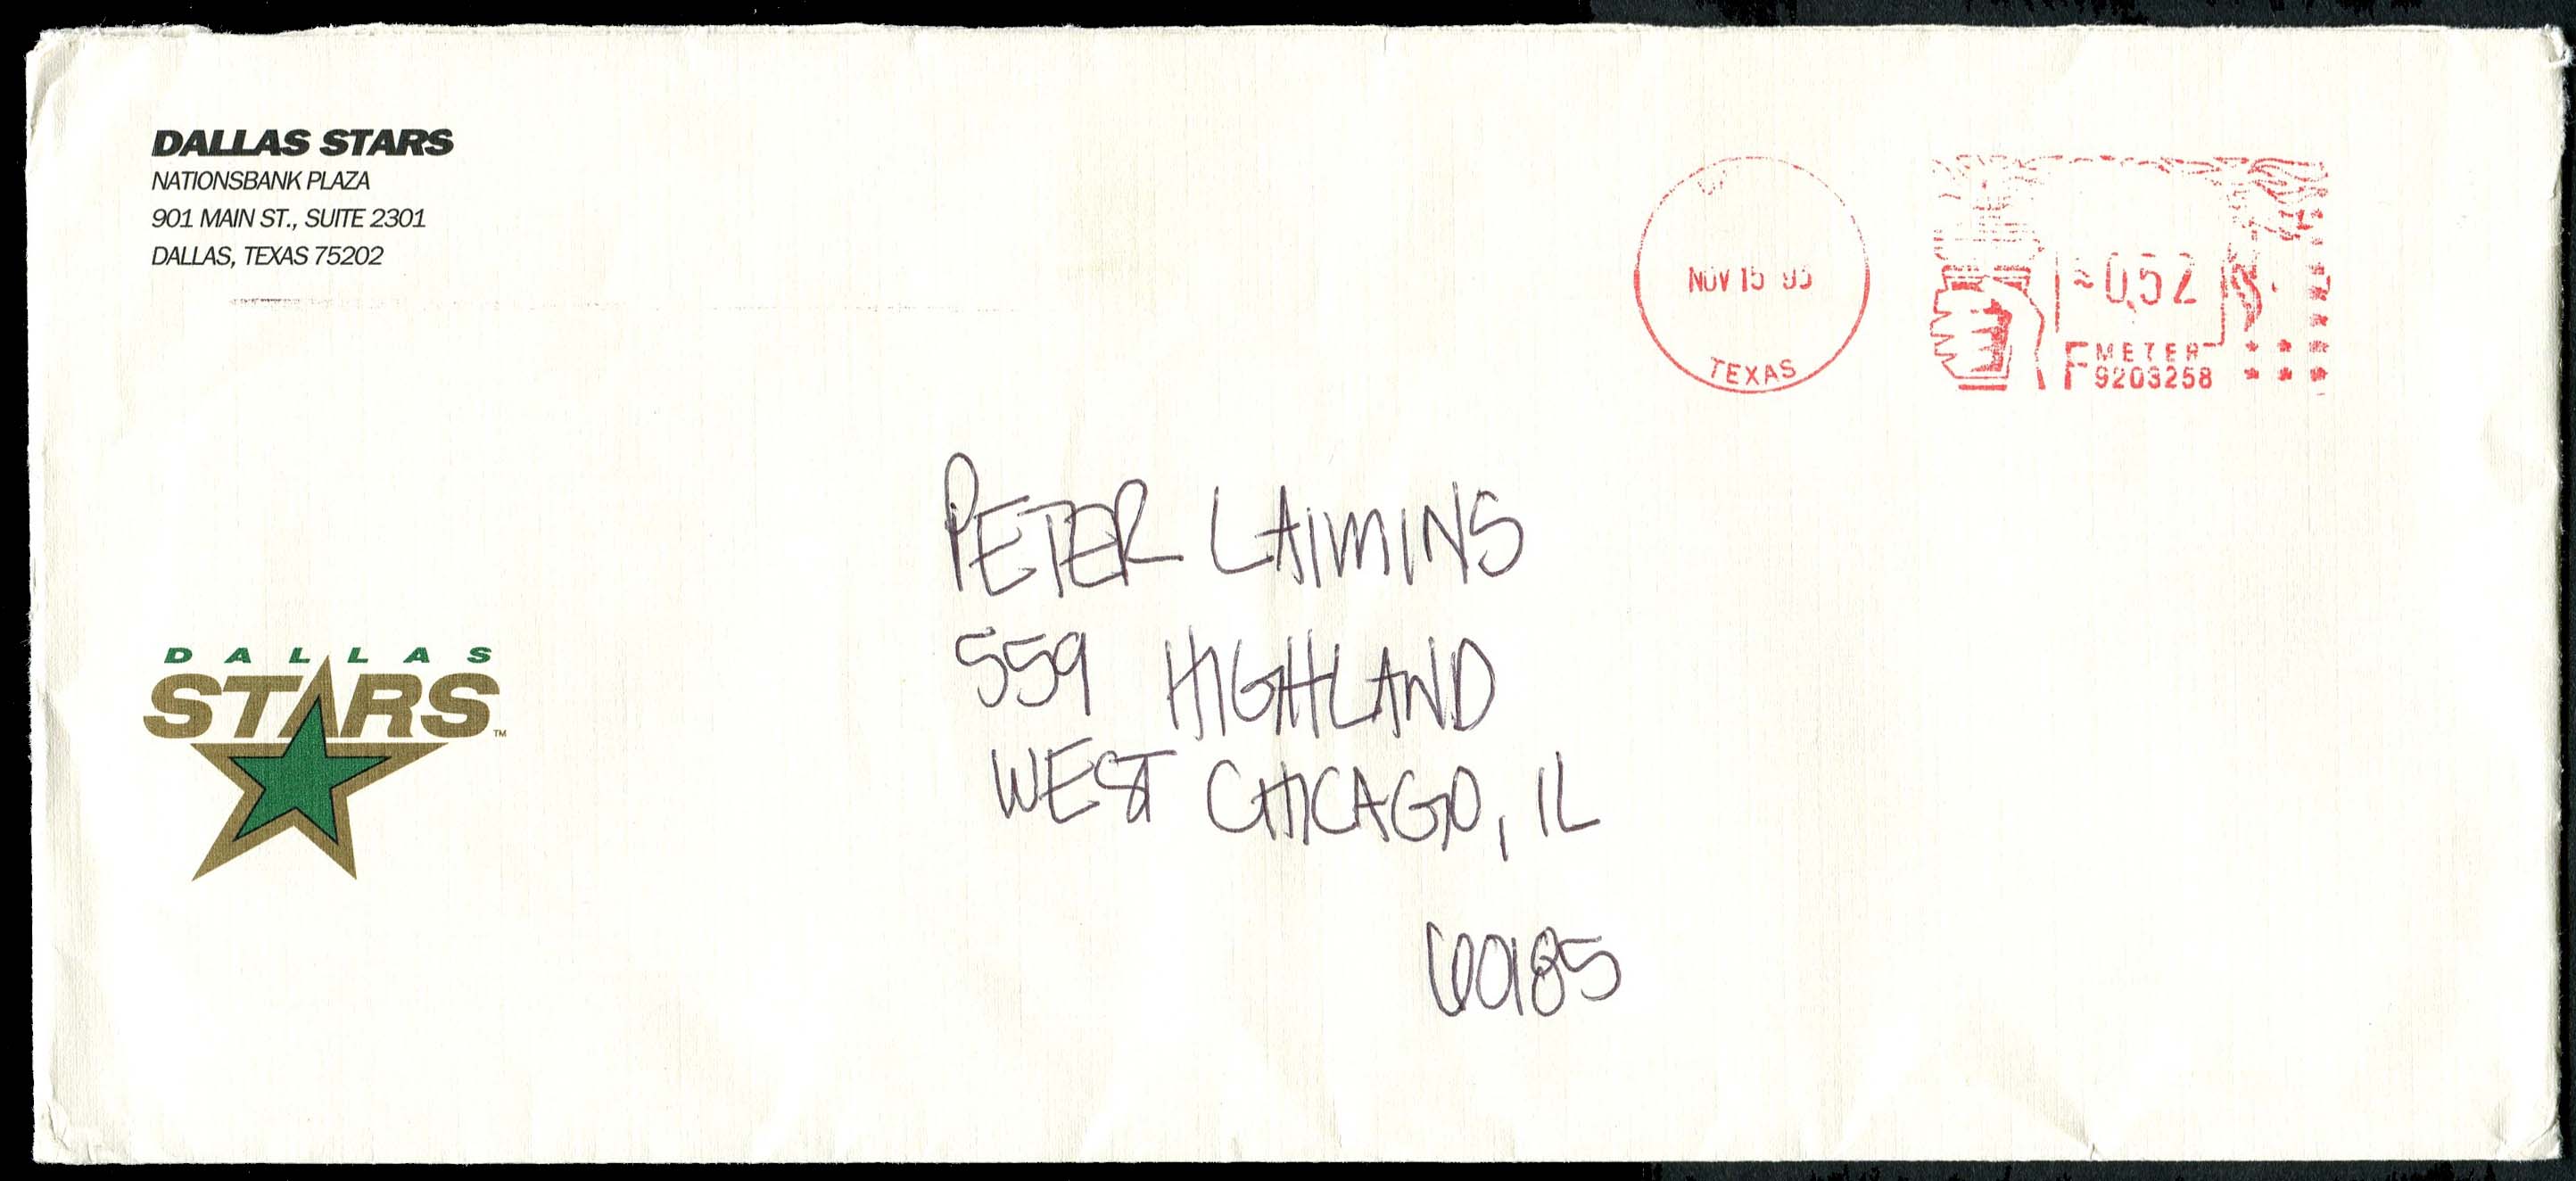 DALLAS STARS
NATIONSBANK PLAZA
901 MAIN ST., SUITE 2301
DALLAS, TEXAS 75202
NOV 15
TEXAS
0.52
F METER
9203258
PETER LAIMINS
559 HIGHLAND
WEST CHICAGO, IL
60185
DALLAS
STARS™